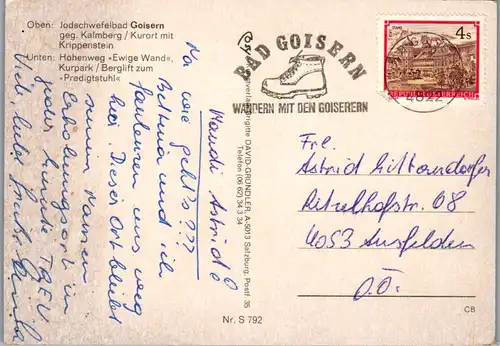 Oben: Jodschwefelbad Goisern
geg. Kalmberg / Kurort mit
Krippenstein
Unten: Höhenweg »Ewige Wand«,
Kurpark / Berglift zum
»Predigtstuhl«
BAD GOISERN
WANDERN MIT DEN GOISERERN
4822
4s
REPUBLIK ÖSTERREICH
Brigitte DAVID-GRÜNDLER, A-5013 Salzburg, Postf. 35
Telefon (06 62) 34 3 34
Maudi Astrid!
Na wie geht's???
Bettina und ich
faulenzen uns weg
hier. Dieser Ort bleibt
seinen Namen
Erholungsort in
jeder Hinsicht TREU
Frl.
Astrid
Ritzlhofstr. 68
4053 Ansfelden
O.Ö.
Nr. S 792
CB